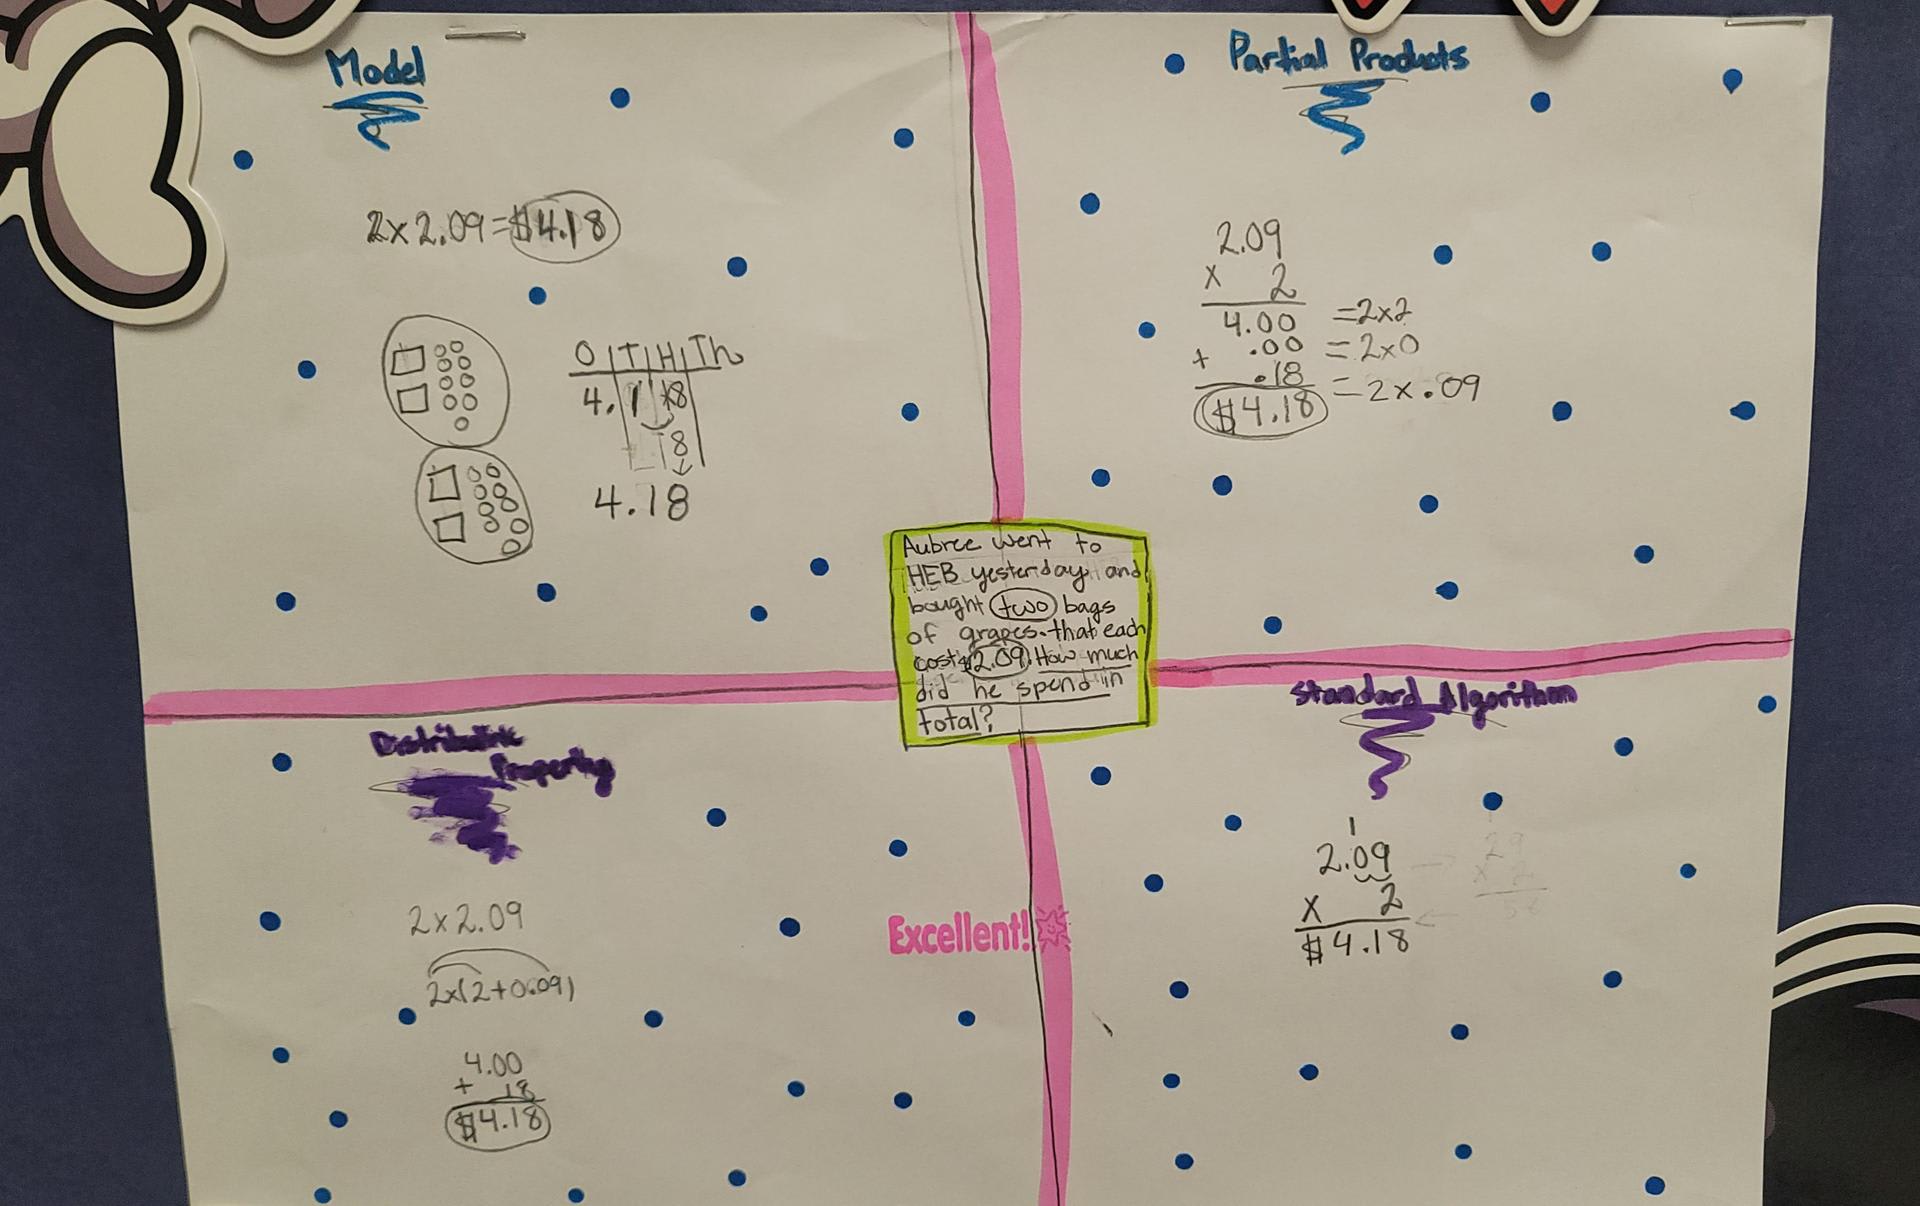 Model
2x2.09=$4.18
O|T|H|Th
4.1 18
8
4.18
Partial Products
2.09
x 2
4.00 =2x2
+ .00 =2x0
.18 =2x.09
$4.18
Aubree went to
HEB yesterday and
bought two bags
of grapes that each
cost $2.09. How much
did he spend in
total?
Distributive
Property
2x2.09
2x(2+0.09)
4.00
+ .18
$4.18
Excellent!
Standard Algorithm
1
2.09
x 2
$4.18